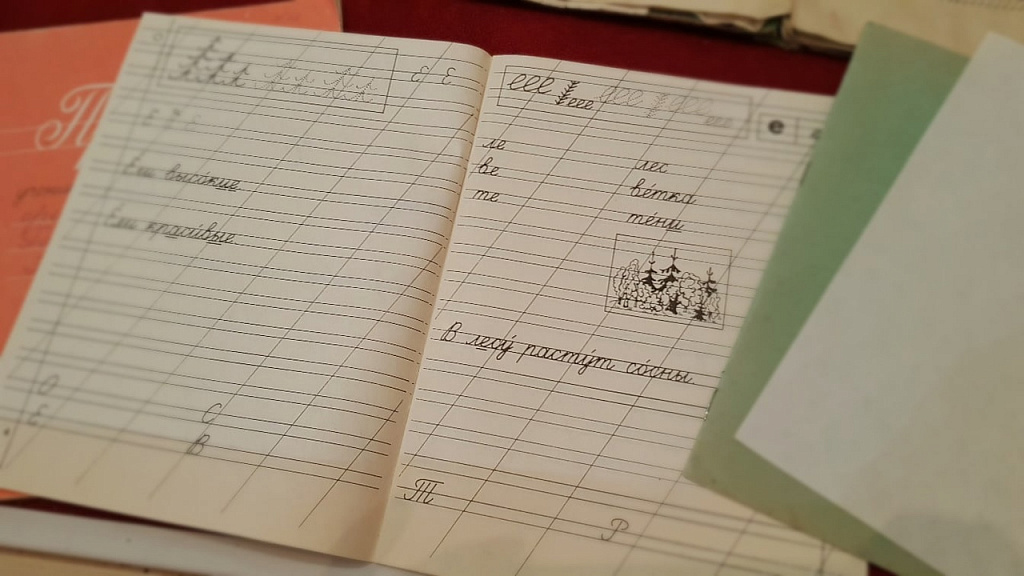 Т
Е Е
Ели высо́кие
Ели краси́вые
О С
Е В
е е е е е е
е
ле лес
ве ве́тка
те те́ни
В лесу́ расту́т со́сны
Т Р